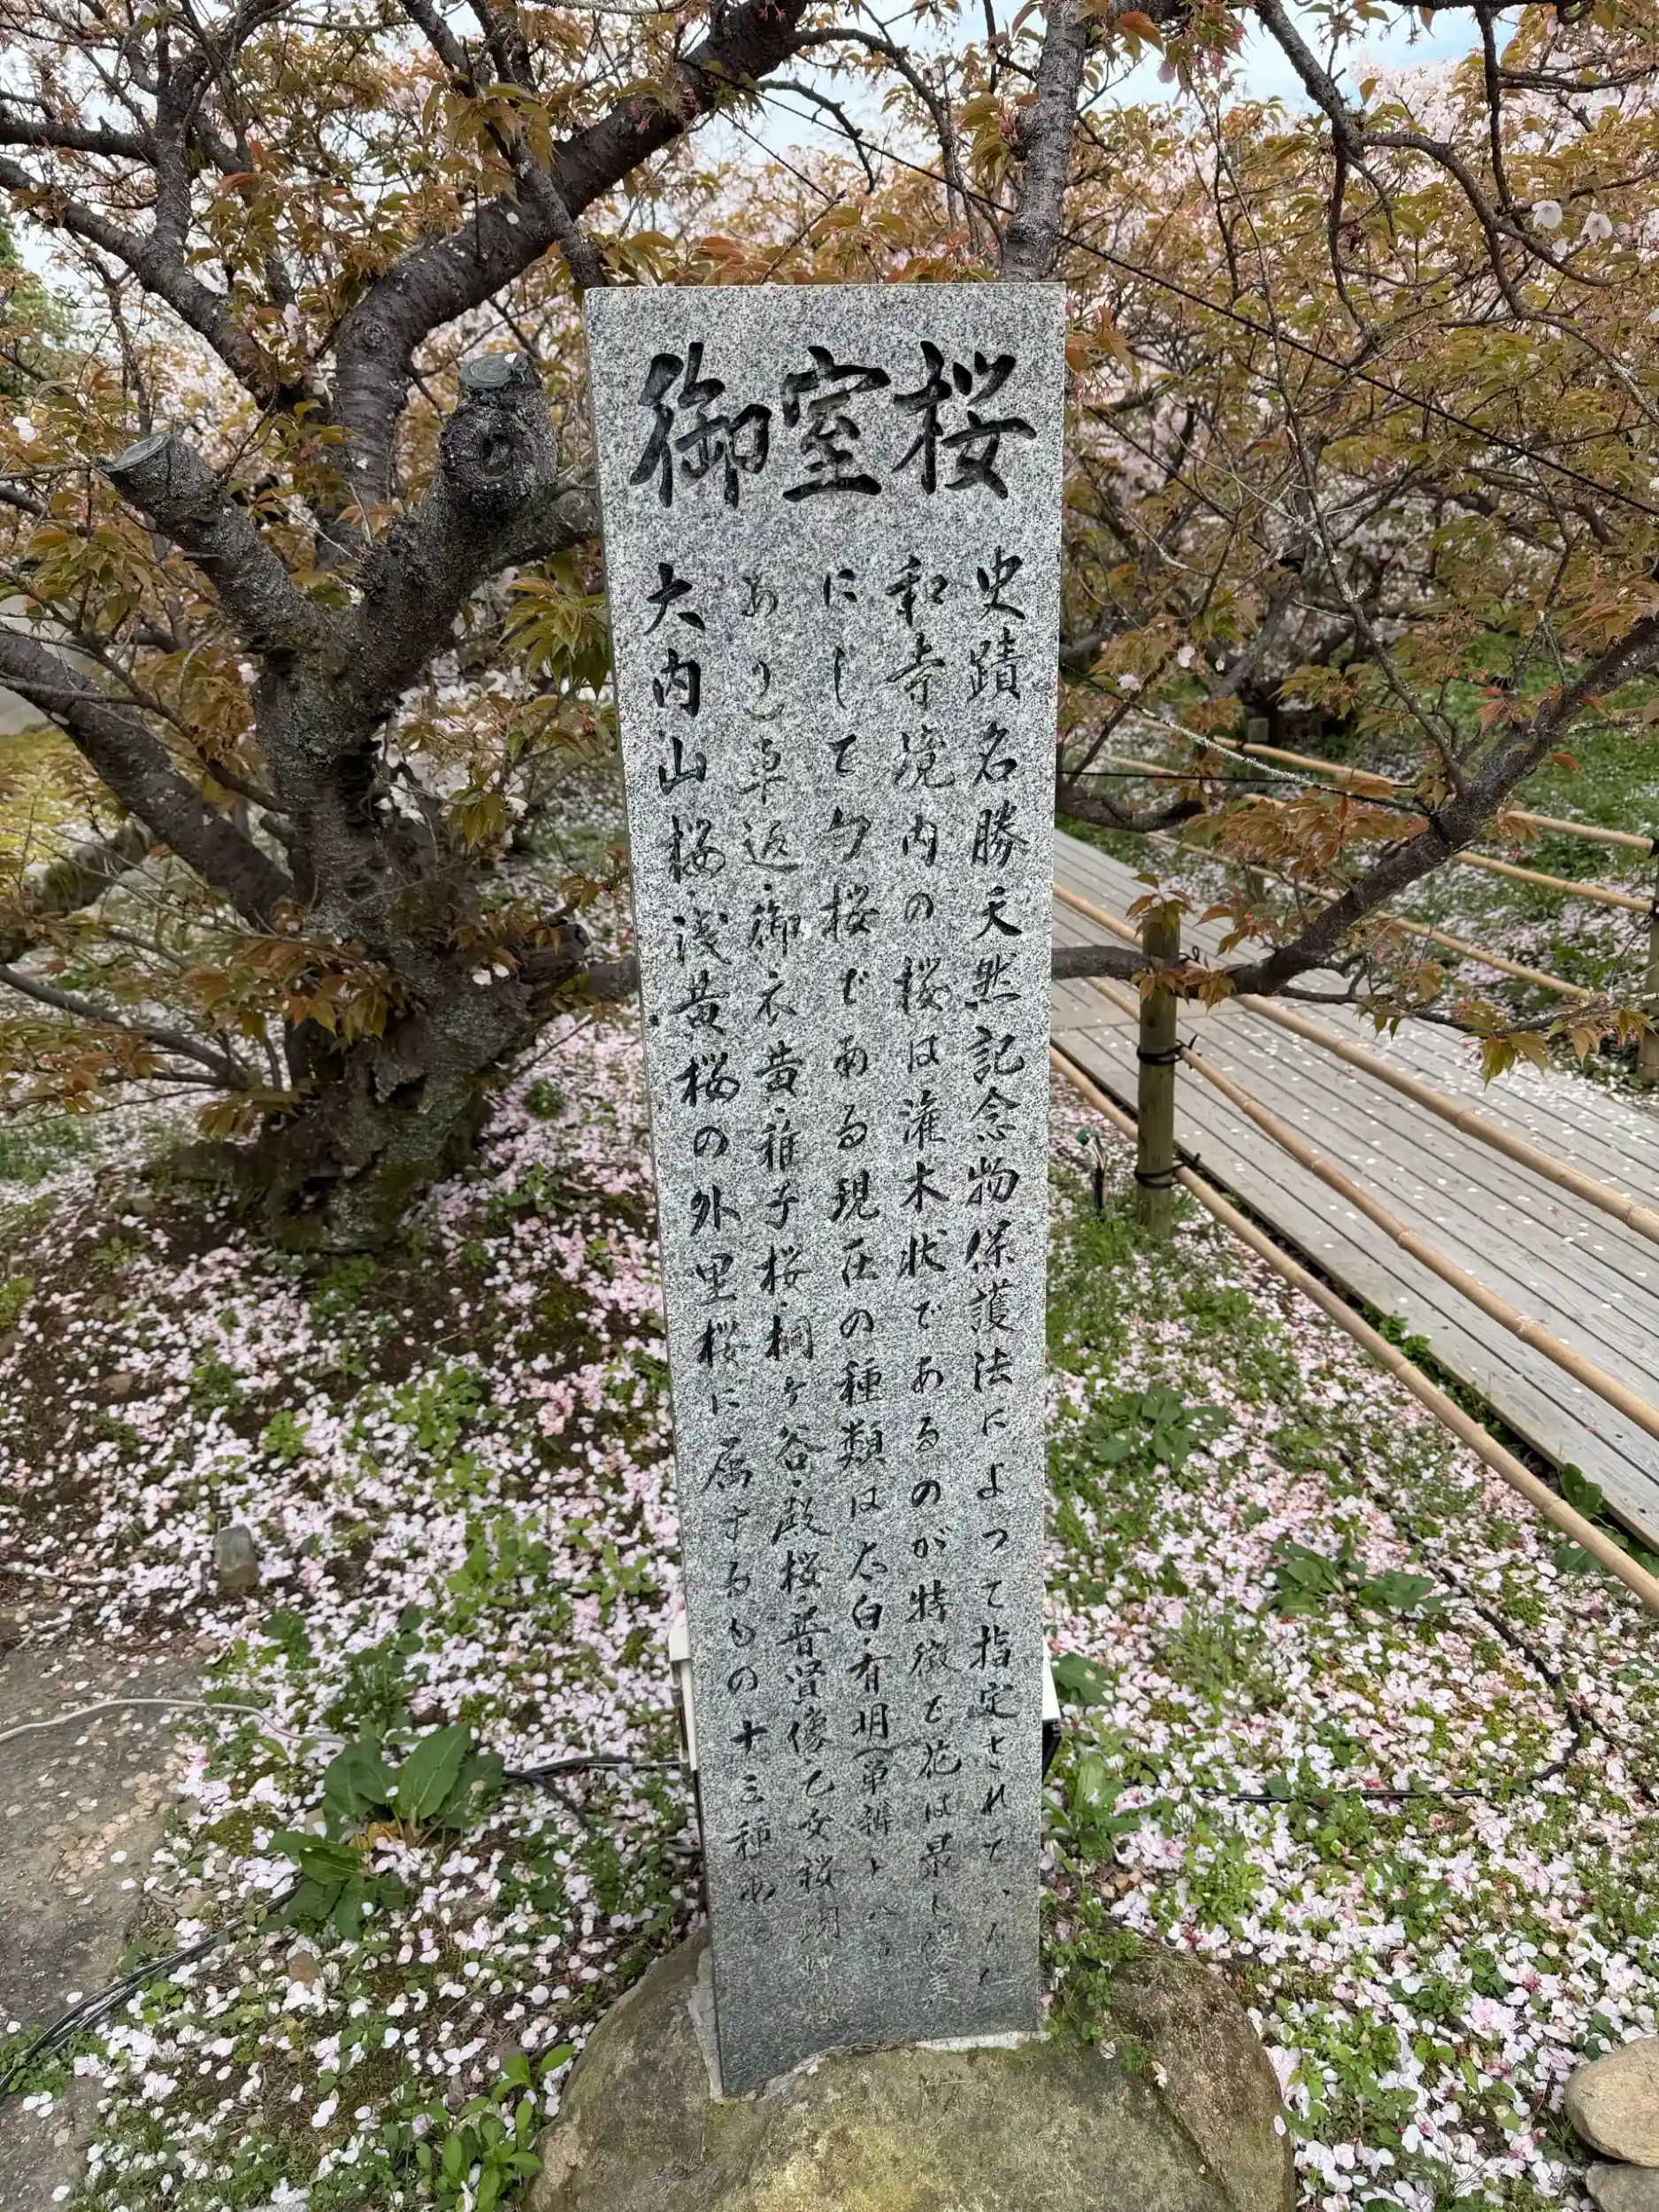 御室桜
史蹟名勝天然記念物保護法によって指定されている仁
和寺境内の桜は灌木状であるのが特徴で花は最も優美
にして匂桜である現在の種類は太白・有明(単辨と八重
あり)車返・御衣黄・稚子桜・桐ヶ谷・殿桜・普賢像・乙女桜
大内山桜・浅黄桜の外里桜に属するもの十三種あ